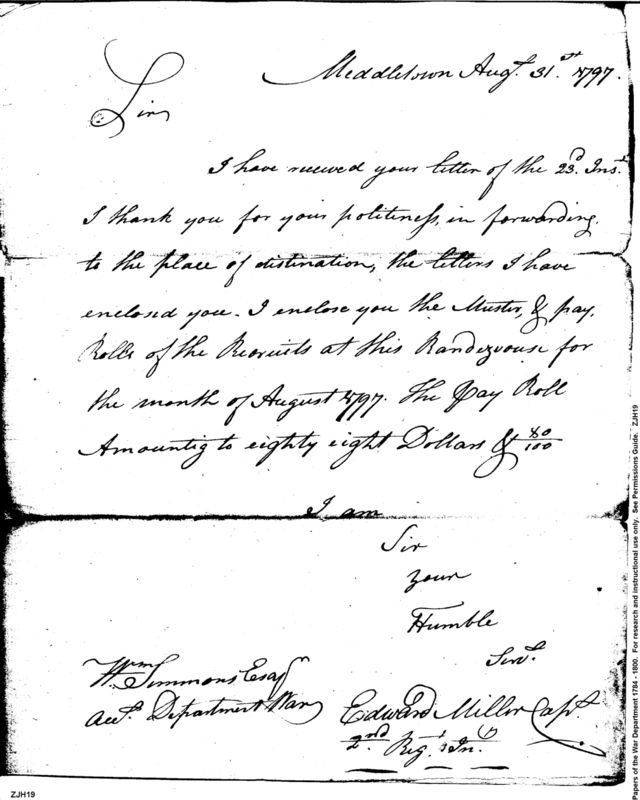 Meddletown Augt. 31st. 1797.
Sir
I have received your letter of the 23d. Inst.
I thank you for your politeness, in forwarding
to the place of distination, the letters I have
enclosed you. I enclose you the Muster, & pay,
Rolls of the Recruits at this Randezvouse for
the month of August 1797. The Pay Roll
Amountig to eighty eight Dollars & 80/100
I am
Sir
your
Humble
Servt.
Wm. Simmons Esqr
Acct. Department War
Edward Miller Capt.
2nd Regt. Inf.
Papers of the War Department 1784 - 1800. For research and instructional use only. See Permissions Guide. ZJH19
ZJH19